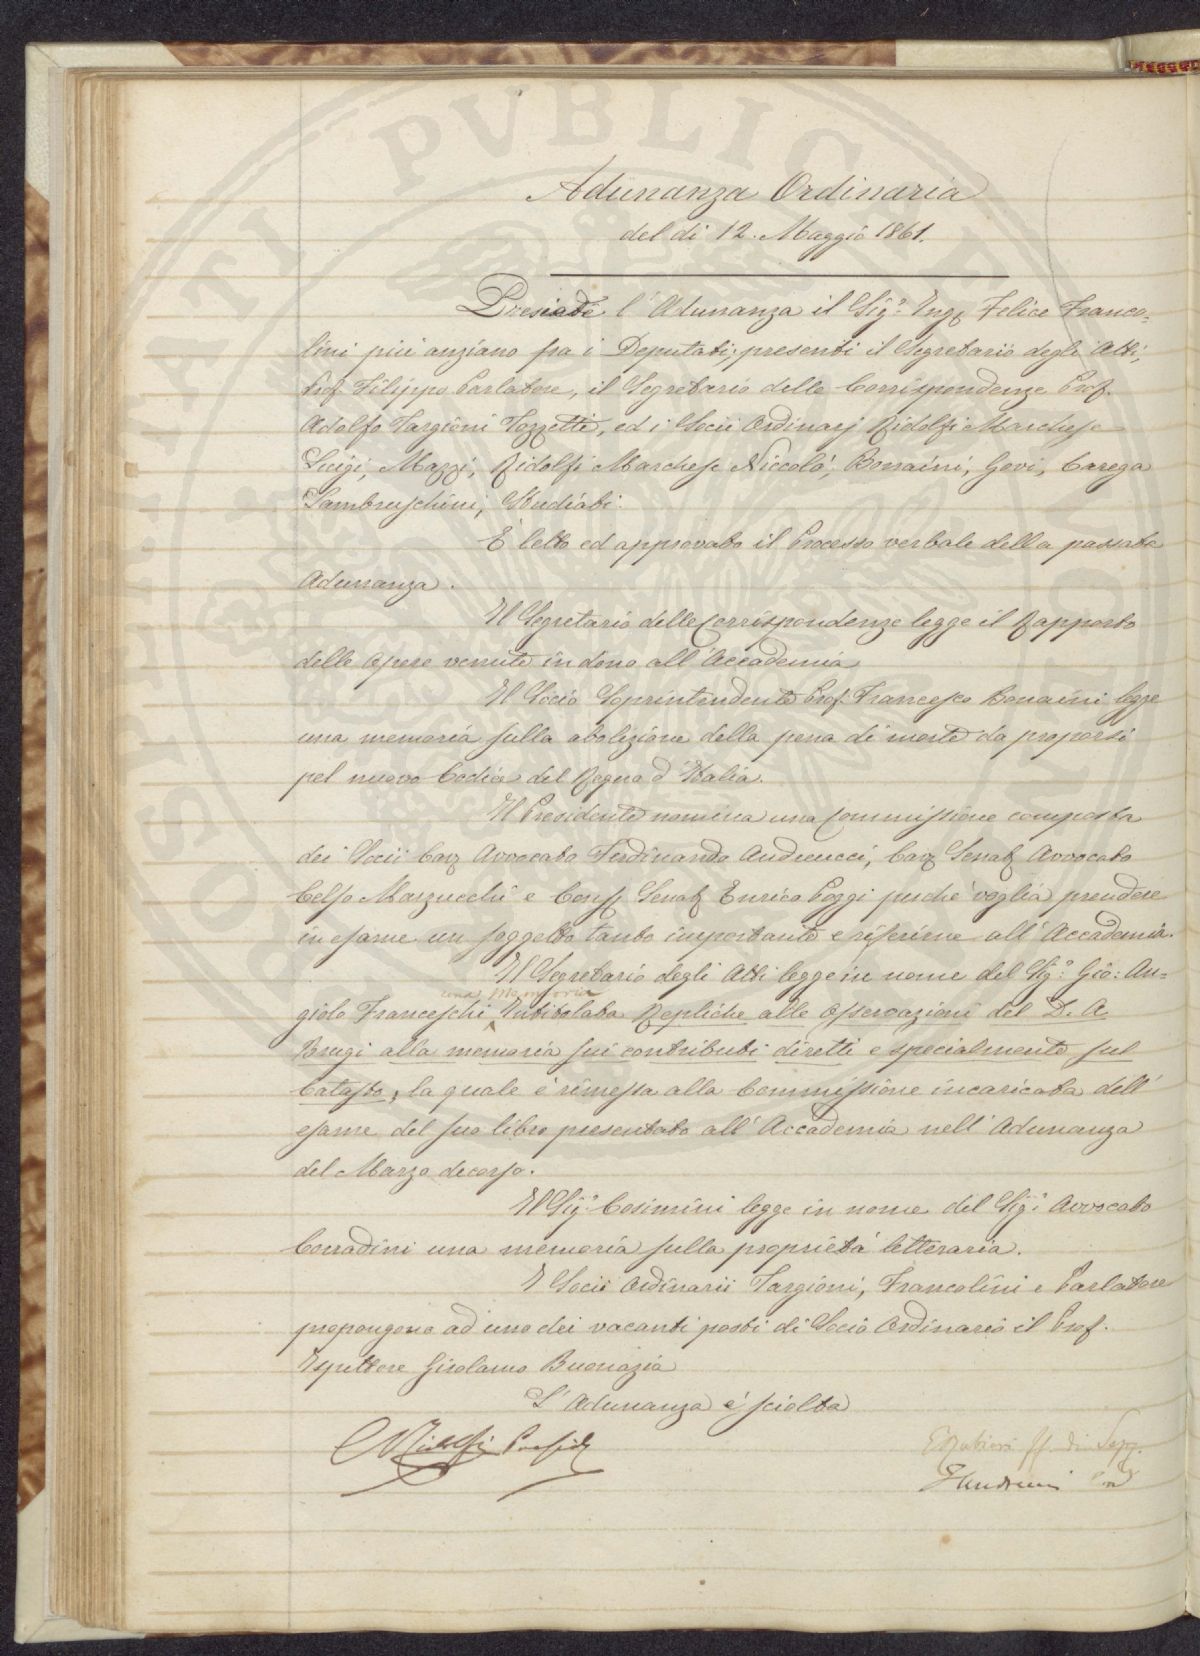 Adunanza Ordinaria
del di 12. Maggio 1861.
Presiede l'Adunanza il Sigr. Ingr. Felice Franco=
lini più anziano fra i Deputati; presenti il Segretario degli Atti,
Prof. Filippo Parlatore, il Segretario delle Corrispondenze Prof.
Adolfo Targioni Tozzetti, ed i Socii Ordinarj Ridolfi Marchese
Luigi, Mazzi, Ridolfi Marchese Niccolò, Bonaini, Govi, Carega
Lambruschini, Studiati.
È letto ed approvato il Processo verbale della passata
Adunanza.
Il Segretario delle Corrispondenze legge il Rapporto
delle Opere venute in dono all'Accademia
Il Socio Soprintendente Prof. Francesco Bonaini legge
una memoria sulla abolizione della pena di morte da proporsi
pel nuovo Codice del Regno d'Italia.
Il Presidente nomina una Commissione composta
dei Socii Cavr Avvocato Ferdinando Andreucci, Cavr Senatr Avvocato
Celso Marzucchi e Consr Senatr Enrico Poggi perchè voglia prendere
in esame un soggetto tanto importante e riferirne all'Accademia.
Il Segretario degli Atti legge in nome del Sigr. Gio: An=
una Memoria
giolo Franceschi Intitolata Repliche alle Osservazioni del D. A.
Brugi alla memoria sui contributi diretti e specialmente sul
Catasto, la quale è rimessa alla Commissione incaricata dell'
esame del suo libro presentato all'Accademia nell'Adunanza
del Marzo decorso.
Il Sigr. Cosimini legge in nome del Sigr. Avvocato
Corradini una memoria sulla proprietà letteraria.
I Socii Ordinarii Targioni, Francolini e Parlatore
propongono ad uno dei vacanti posti di Socio Ordinario il Prof.
Ispettore Girolamo Buonazia
L'Adunanza è sciolta
C Ridolfi Presidr
ff. di Segr.
PVBLICAE
PROSPERITATI